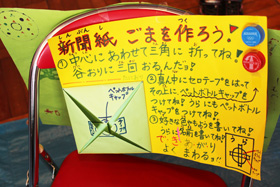 しんぶんし つく
新聞紙 ごまを作ろう!
①中心にあわせて三角に折ってね!
谷おりに三回おるんだっ!
②真ん中にセロテープをはって
その上にペットボトルキャップを
つけてね! うらにもペットボトル
キャップをつけてね!
③好きな色やもようを書いてね!
できあがり
よく まわるっ!!
ペットボトル
キャップ